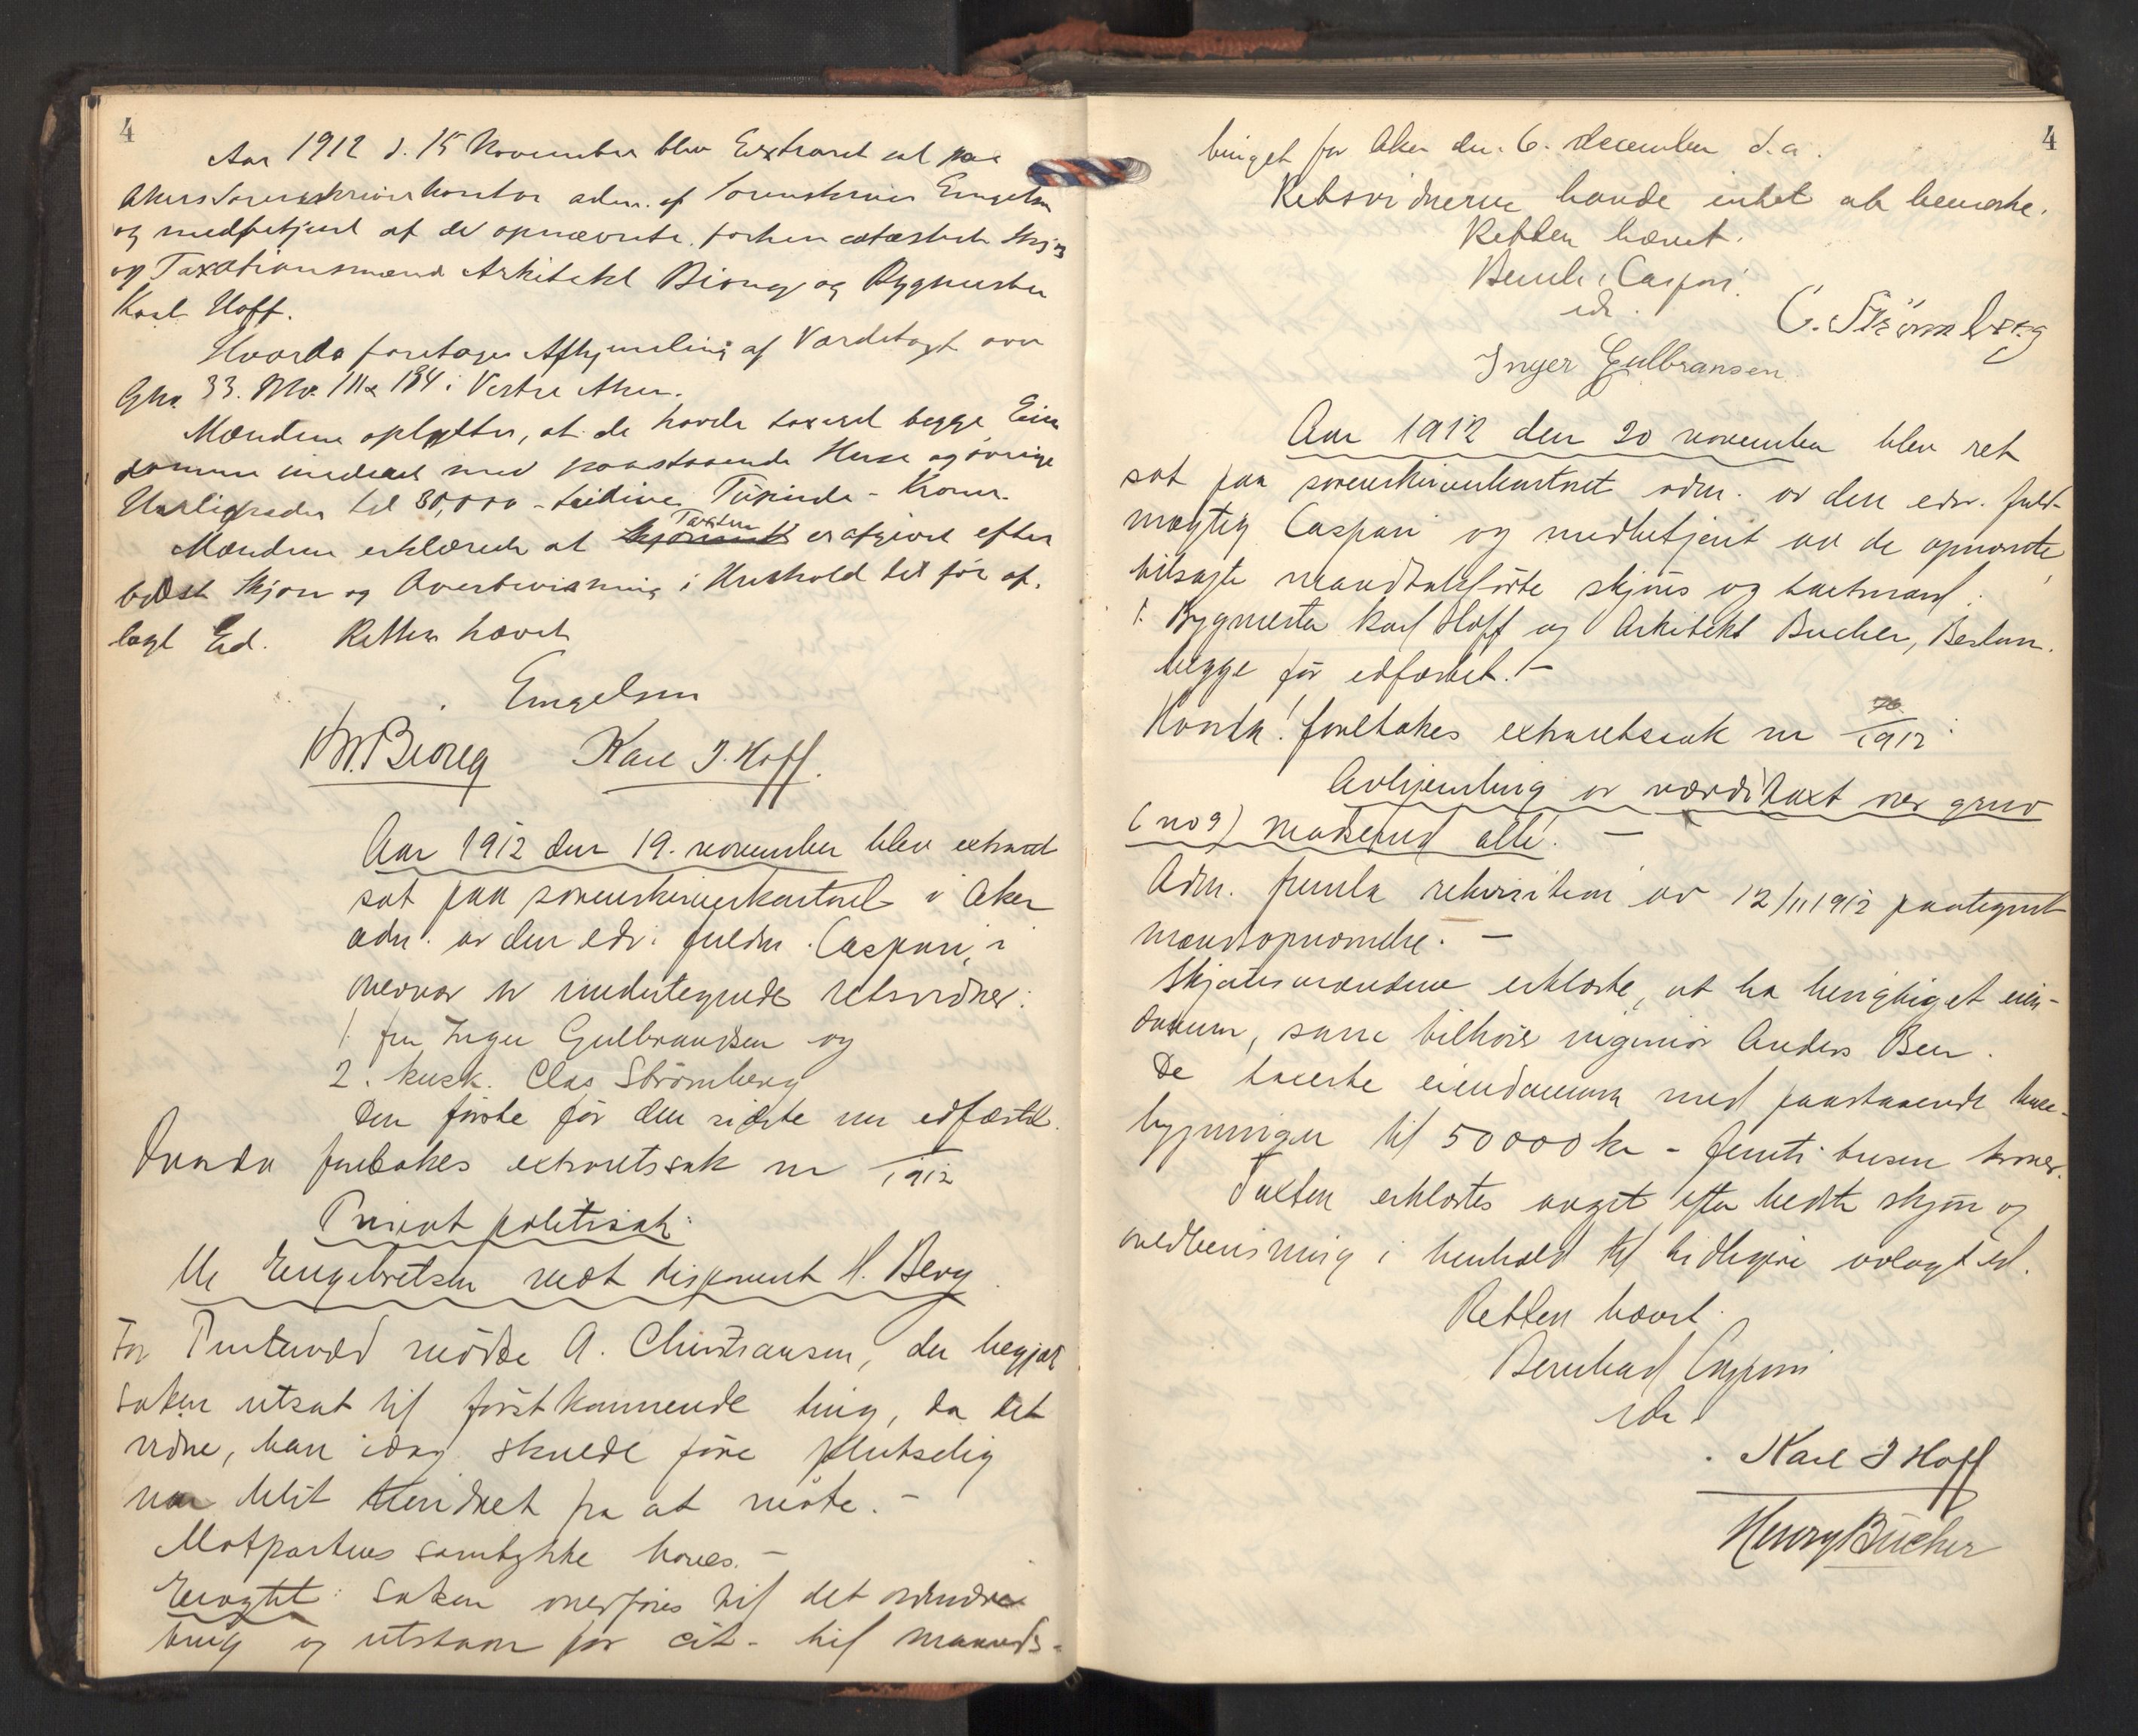 4
Aar 1912 d. 15 November blev Extraret sat paa
Akers Sorenskriverkontor adm. af Sorenskriver Engelsen
og medbetjent af de opnævnte, forhen edfæstede Skjøns
og Taxationsmænd Arkitekt Biong og Bygmester
Karl Hoff.
Hvorda foretages Afhjemling af Værditaxt over
Gno. 33. Bno. 111 & 184 i Vestre Aker.
Mændene oplyste, at de havde taxeret begge Eien
domme med paastaaende Huse og øvrige
Herligheder til 30,000 - tredive Tusinde - Kroner.
Mændene erklærede at Taxten er afgivet efter
bedste Skjøn og Overbevisning i Henhold til før af-
lagt Ed. Retten hævet
Engelsen
Biong Karl J. Hoff.
Aar 1912 den 19. november blev extraret
sat paa sorenskriverkontoret i Aker
adm. av den edsv. fuldm. Caspari, i
overvær av undertegnede retsvidner:
1. fru Inger Gulbrandsen og
2. kusk. Clas Strømberg
Den første før den sidste nu edfæstet.
Hvorda foretokes extraretssak nr 1912
Privat politisak:
Engebretsen mot disponent H. Berg.
For møtte A. Christiansen, der begjærte
saken utsat til førstkommende ting, da det
vidne, han idag skulde føre plutselig
var blit hindret fra at møte. -
Motpartens samtykke haves. -
Eragtet: saken overføres til det ordinære
ting og utstaar for cit. til maaneds-
4
tinget for Aker den 6. december d.a.
Retsvidnerne havde intet at bemerke.
Retten hævet.
Bernh. Caspari.
edsv.
C. Strömberg
Inger Gulbransen.
Aar 1912 den 20 november blev ret
sat paa sorenskriverkontoret adm. av den edsv. fuld-
mægtig Caspari og medbetjent av de opnævnte,
tilsagte mandtalsførte skjøns og taxtmænd:
1. Bygmester Karl Hoff og Arkitekt Bucher, Bestum.
begge før edfæstet. -
Hvorda! foretokes extraretssak nr 76/1912:
Avhjemling av værditaxt over gnr
(no 9) Madserud allé. -
Adm. fremla rekvisition av 12/11 1912 paategnet
mandsopnævnelse. -
Skjønsmændene erklærte, at ha besigtiget eien-
dommen, som tilhører ingeniør Anders Beer.
De taxerte eiendommen med paastaaende hus-
bygninger til 50000 kr - femti tusen kroner.
Taxten erklærtes avgit efter bedste skjøn og
overbevisning i henhold til tidligere avlagt ed.
Retten hævet.
Bernhard Caspari
edsv.
Karl J Hoff
Henry Bucher